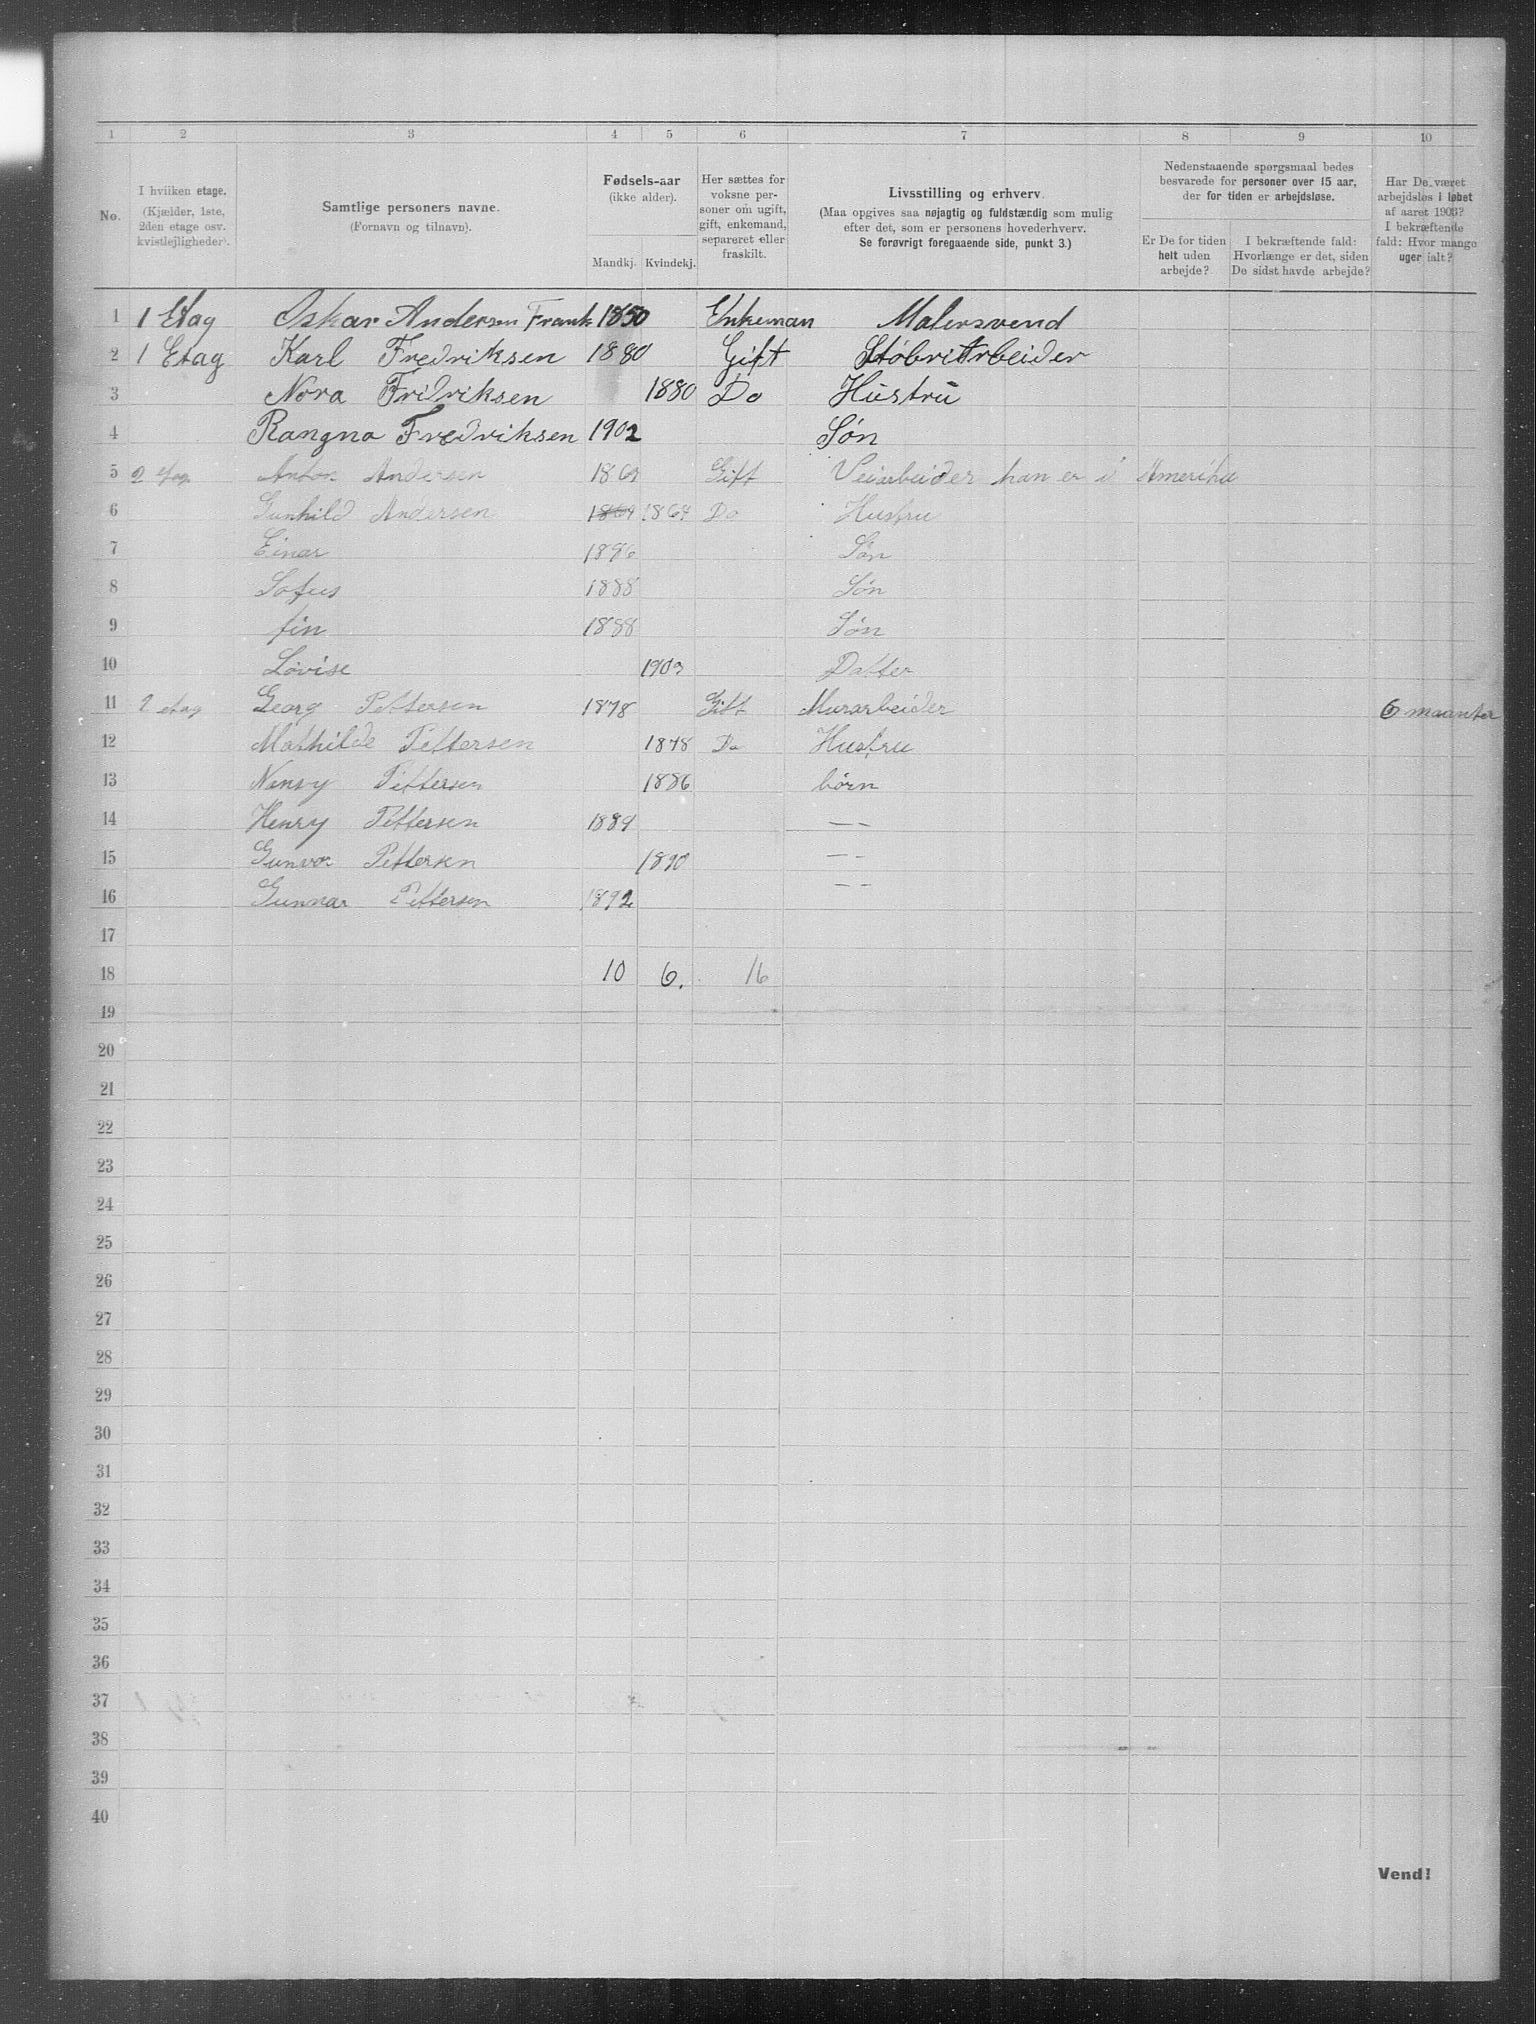 1 2 3 4 5 6 7 8 9 10
No.
I hvilken etage. (Kjælder, 1ste, 2den etage osv. kvistlejligheder).
Samtlige personers navne. (Fornavn og tilnavn).
Fødsels-aar (ikke alder).
Mandkj. Kvindekj.
Her sættes for voksne personer om ugift, gift, enkemand, separeret eller fraskilt.
Livsstilling og erhverv. (Maa opgives saa nøjagtig og fuldstændig som mulig efter det, som er personens hovederhverv. Se forøvrigt foregaaende side, punkt 3.)
Nedenstaaende spørgsmaal bedes besvarede for personer over 15 aar, der for tiden er arbejdsløse.
Er De for tiden helt uden arbejde?
I bekræftende fald: Hvorlænge er det, siden De sidst havde arbejde?
Har De været arbejdsløs i løbet af aaret 1903? I bekræftende fald: Hvor mange uger ialt?
1 1 Etag Oskar Andersen Frank 1850 Enkeman Malersvend
2 1 Etag Karl Fredriksen 1880 Gift Støbri Arbeider
3 Nora Fridriksen 1880 Do Hustru
4 Rangna Fredriksen 1902 Søn
5 2 Anton Andersen Gift Veiarbeider han er i Amerika
6 Gunhild Andersen 1864 Do Hustru
7 Einar 1896 Søn
8 Sofus 1888 Søn
9 fin 1888 Søn
10 Lovise Datter
11 2 etag Georg Pettersen 1878 Gift Murarbeider 6 maanter
12 Mathilde Pettersen 1848 Do Hustru
13 Nansy Pettersen 1886 børn
14 Henry Pettersen 1889 — —
15 Gunvor Pettersen 1890 — —
16 Gunnar Pettersen 1892 — —
17
18 10 6. 16
19
20
21
22
23
24
25
26
27
28
29
30
31
32
33
34
35
36
37
38
39
40
Vend!